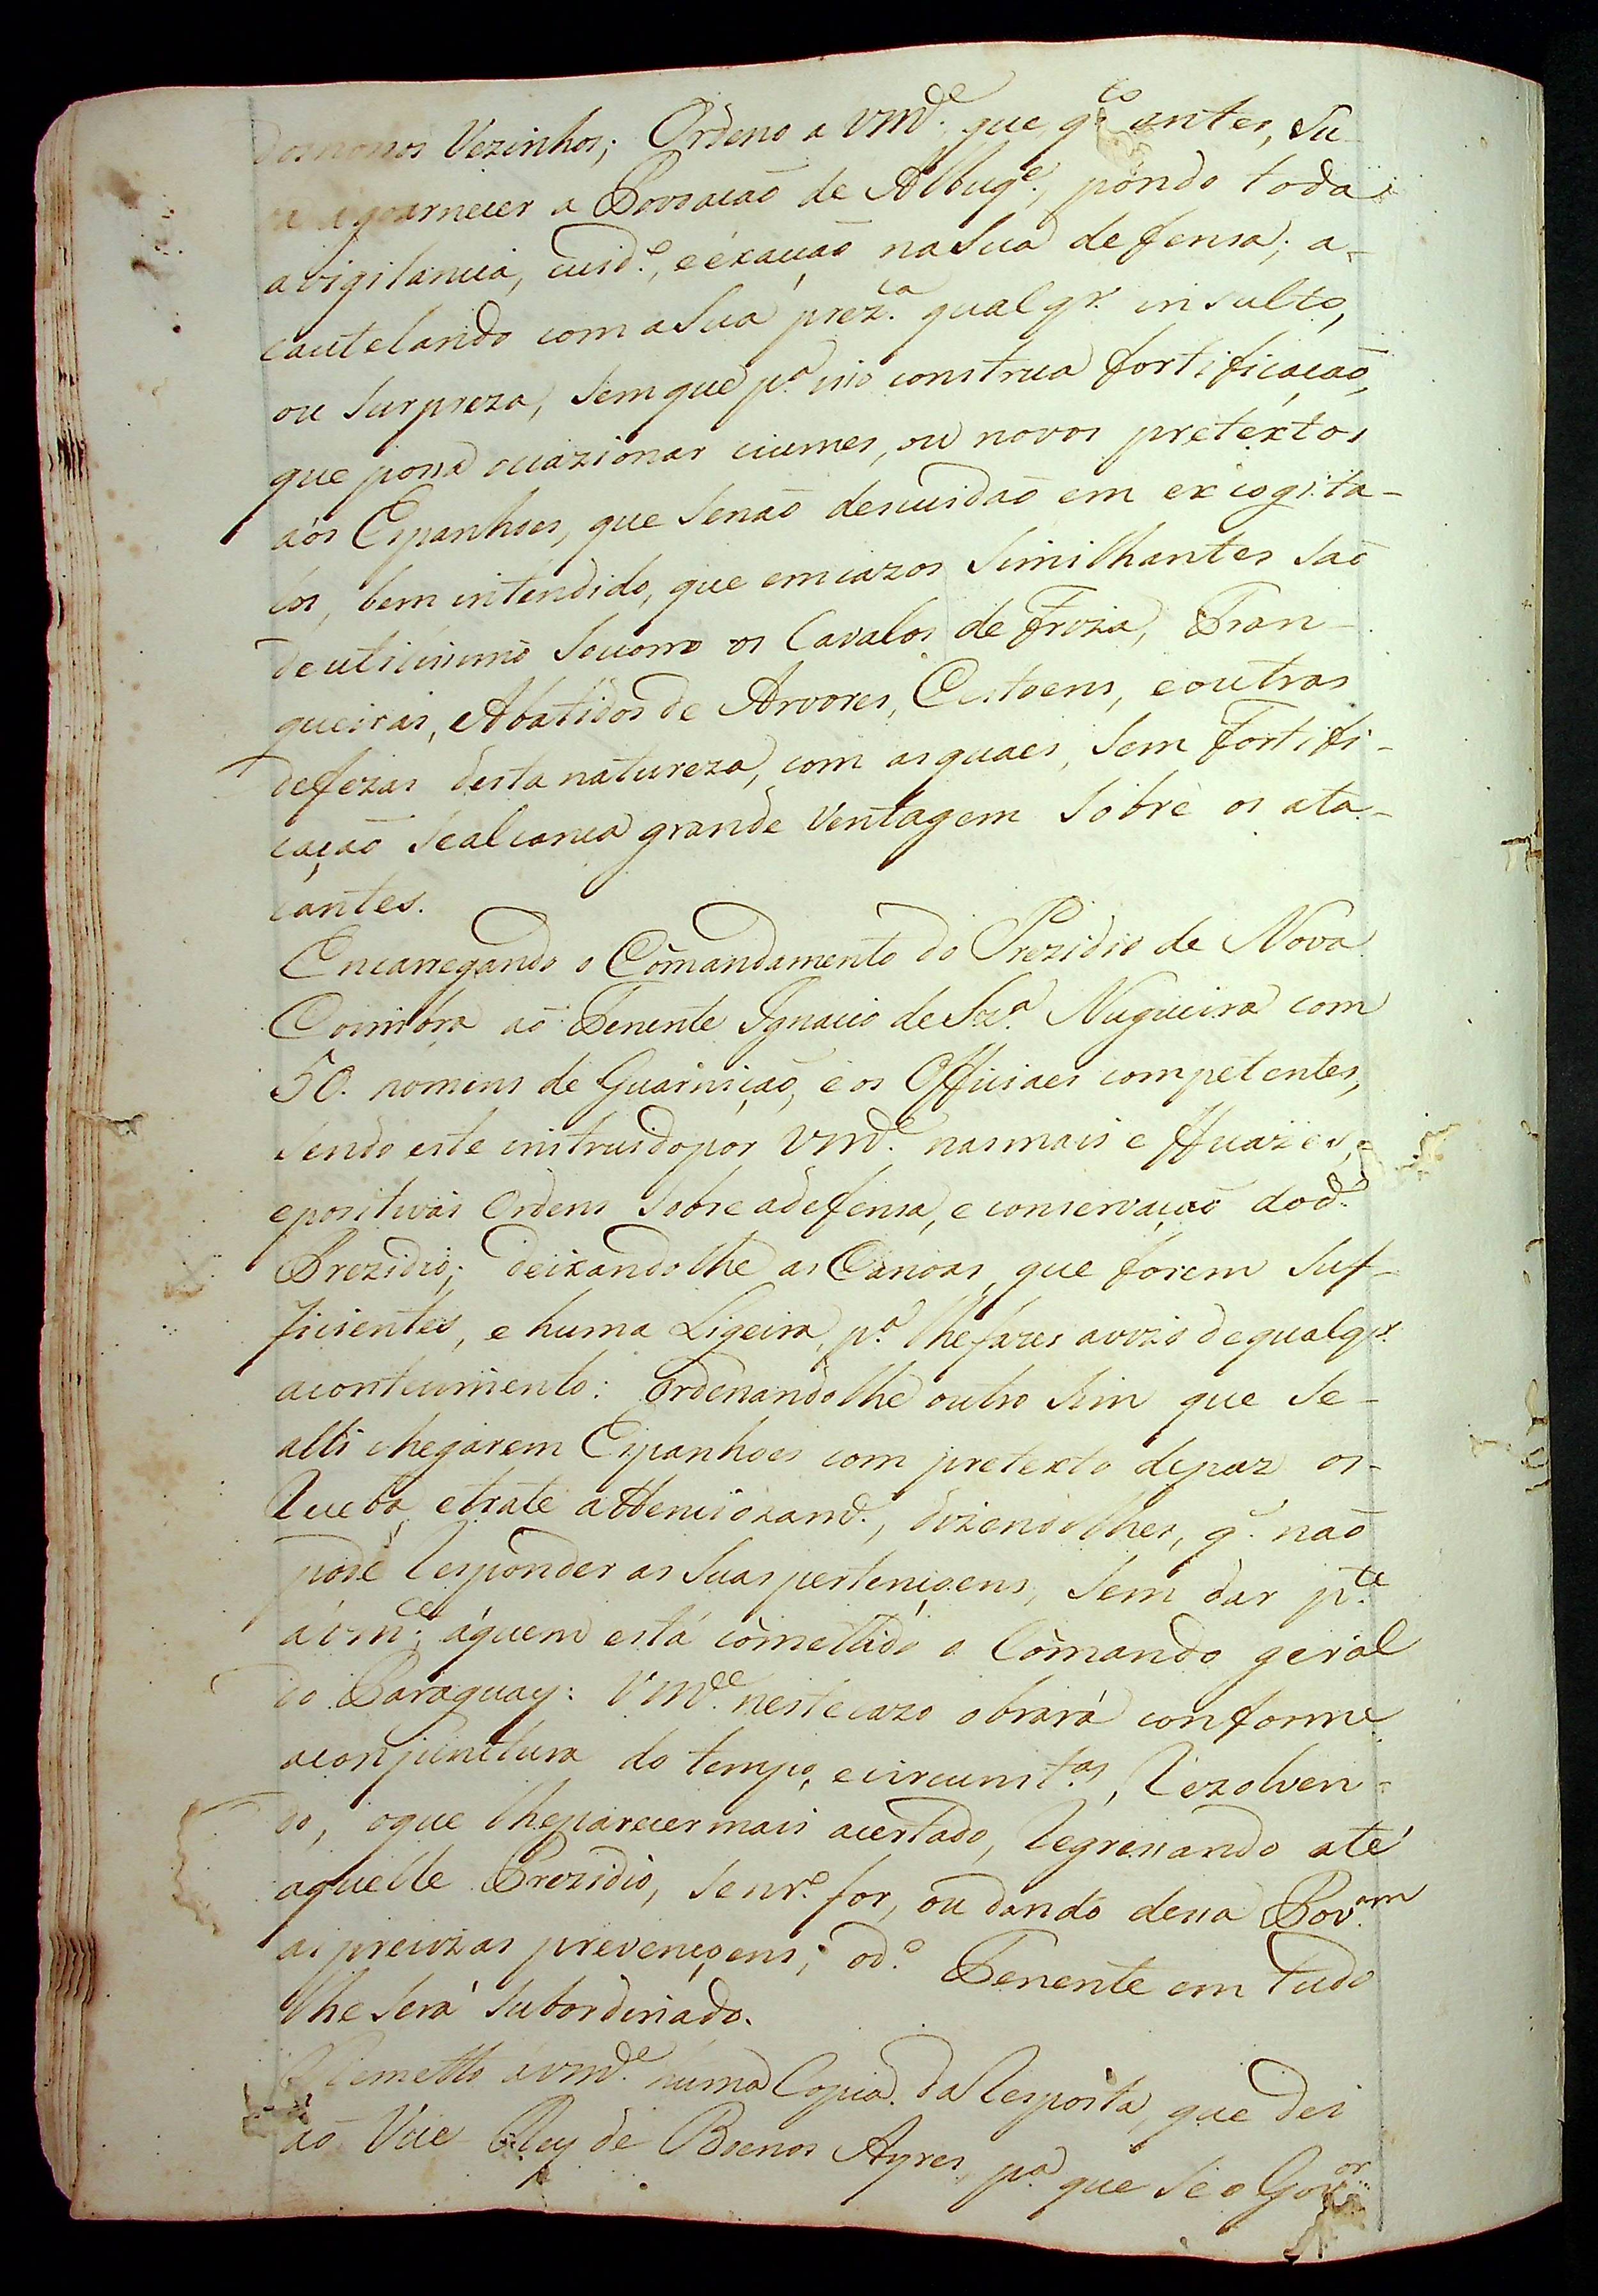 dosnossos Vezinhos; Ordeno a VMd.e que q.to antes, Su-
ba a goarnecer a Povoacaõ de Albuq.e, pondo toda
a vigilancia, cuid.o, e éxacçaõ naSua defensa; a-
cautelando com a Sua prez.ca qualqr. insulto,
ou Surpreza, Sem que p.a isso construa fortificaçaõ,
que possa ocazionar ciumes, ou novos pretextos
aós Espanhoes, que Senaõ descuidaõ em excogita-
los, bem intendido, que em cazos Similhantes Saõ
de utilissimo Socorro os Cavalos de Friza, Tran-
queiras, Abatidos de Arvores, Cestoens, e outras
defezas desta natureza, com asquaes, Sem Fortifi-
caçaõ Sealcança grande Ventagem Sobre os ata-
cantes.
Encarregando o Cõmandamento do Prezidio de Nova
Coimbra aõ Tenente Ignacio de Sz.a Nugueira com
50. homens de Guarniçaõ, e os Officiaes competentes,
Sendo este instruido por VMd.e nasmais efficazes,
epositivas Ordens Sobre adefensa, e conservaçaõ dod.o
Prezidio; deixandolhe as Canoas, que forem Suf-
ficientes, e huma Ligeira, p.a lhefazer avizo dequalqr.
acontecimento: Ordenandolhe outro Sim que Se-
alli chegarem Espanhoes com pretexto depaz os-
Receba, etrate attenciozam.e, dizendolhes, q. naõ
pode Responder as Suas pertençoens, Sem dar p.te
a vm.ce, áquem está cõmettido o Cõmando geral
do Paraguay: VMd.ce nestecazo obrará conforme
aconjunctura do tempo, ecircunst.as, Rezolven-
do, oque lheparecer mais acertado, Regressando até
aquelle Prezidio, Senr.o for, ou dando dessa Pov.am
as precizas prevençoens; od.o Tenente em tudo
lhe Será Subordinado.
Remetto áVMd.e huma Copia da Resposta, que dei
aõ Vice Rey de Boenos Ayres, p.a que Se o Gov.or